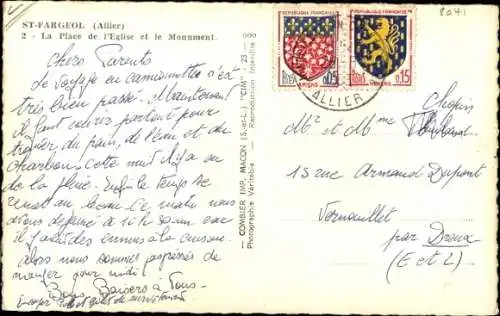 ST-FARGEOL (Allier)
2 - La Place de l'Eglise et le Monument.
000
8041
Chers Parents
Le voyage en camionnette s'est
très bien passé. Maintenant
il faut courir partout pour
trouver du pain, de l'eau et du
charbon. Cette nuit il y a eu
de la pluie. Enfin le temps se
remet au beau. Ce matin nous
avons déjeuné à 10 h 30 car
il y avait des ennuis à la cuisine.
Alors nous sommes pas pressés de
manger pour midi.
Bons Baisers à Tous
COMBIER IMP. MACON (S.-et-L.) "CIM" - 23 -
Photographie Véritable - Reproduction Interdite
REPUBLIQUE FRANÇAISE
0,05
AMIENS
REPUBLIQUE FRANÇAISE
0,15
ALLIER
Mr et Mme
15 rue Armand Dupont
Vernouillet
par Dreux
(E et L)